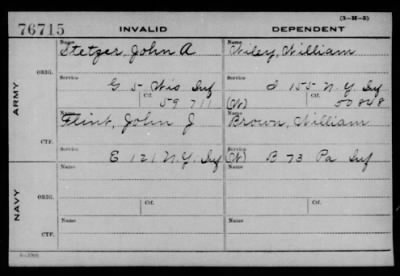 (3-M-3)
76715 INVALID DEPENDENT
Name Name
Stetzer, John A Wiley, William
ORIG. Service Service
G 5 Wis Inf I 155 N.Y. Inf
Ctf. Ctf.
59 711 (W) 50848
ARMY
Name Name
Flint, John J Brown, William
CTF. Service Service
E 121 N.Y. Inf (W) B 73 Pa Inf
Name Name
ORIG. Service Ctf. Service Ctf.
NAVY
Name Name
CTF.